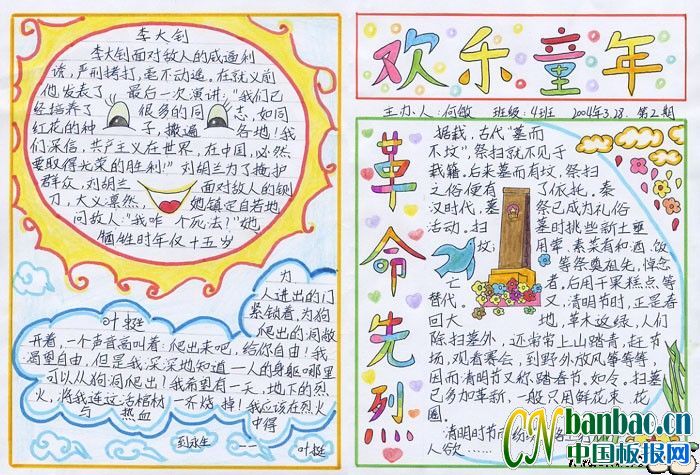 李大钊
李大钊面对敌人的威逼利
诱，严刑拷打，毫不动遥，在就义前
他发表了 最后一次演讲："我们已
经培养了 很多的同志，如同
红花的种 子，撒遍 各地！我
们深信，共产主义在世界，在中国，必然
要取得光荣的胜利！"刘胡兰为了掩护
群众，刘胡兰 面对敌人的铡
刀，大义凛然， 她镇定自若地
问敌人："我咋 个死法？"她
牺牲时年仅十五岁
叶挺
为
人进出的门
紧锁着，为狗
爬出的洞敞
开着，一个声音高叫着：爬出来吧，给你自由！我
渴望自由，但是我深深地知道一人的身躯哪里
可以从狗洞爬出！我希望有一天，地下的烈
火，将我连这活棺材一齐烧掉！我应该在烈火
与 热血 中得
到永生 —— 叶挺
欢乐童年
主办人：何敏 班级：4班 2004年3.28. 第2期
革命先烈
据载，古代"墓而
不坟"，祭扫就不见于
载籍。后来墓而有坟，祭扫
之俗便有 了依托。秦
汉时代，墓 祭已成为礼俗
活动。扫 墓时挑些新土垩
坟 用荤、素菜有和酒、饭
等祭奠祖先，悼念
亡 者，后用干果糕点等
替代。 又，清明节时，正是春
回大 地，草木返绿，人们
除扫墓外，还常常上山踏青，赶节
场，观看赛会，到野外放风筝等等，
因而清明节又称踏春节。如今。扫墓
已多加革新，一般只用鲜花束 花
圈。
清明时节雨纷纷，路上行
人欲……
CN banbao.cn
中国板报网